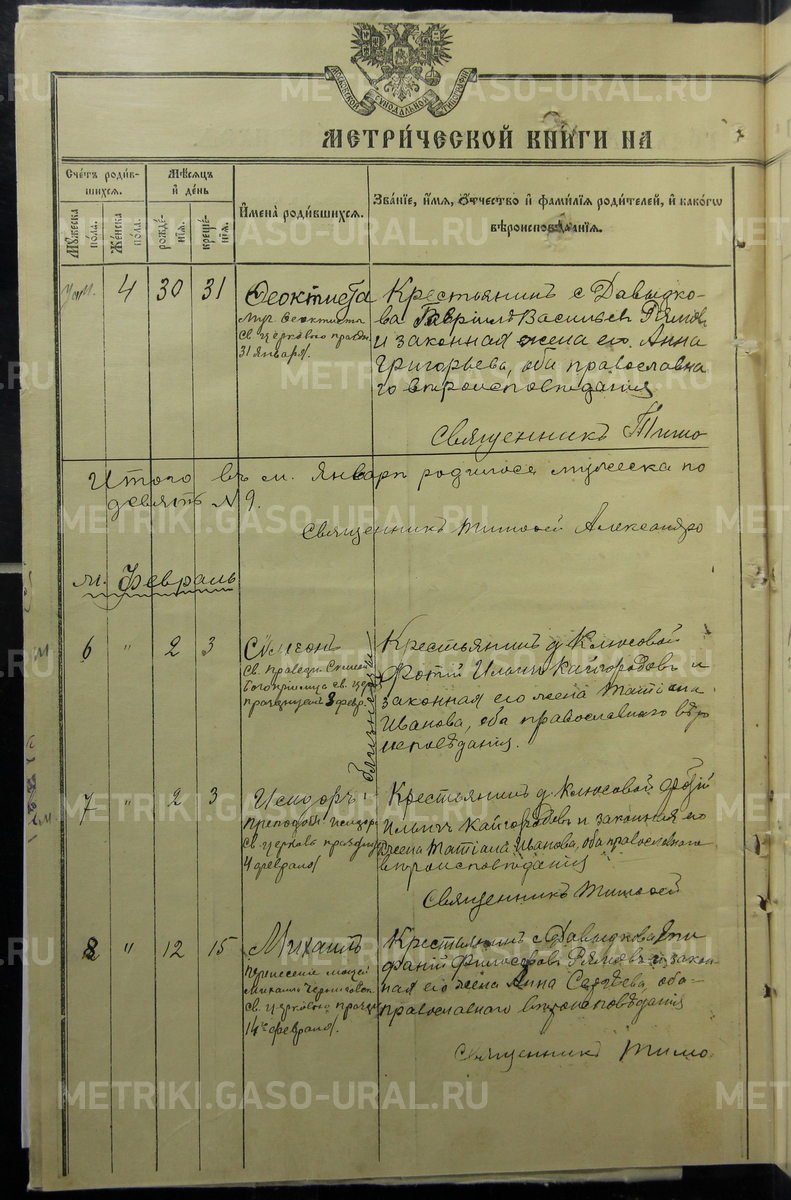 МОСКОВСКОЙ СѴНОДАЛЬНОЙ ТИПОГРАФІИ
МЕТРИ́ЧЕСКОЙ КНИ́ГИ НА
Сче́тъ роди́в-
шихся.
Мꙋ́жеска по́ла.
Же́нска по́ла.
Мѣ́сяцъ и́ де́нь
рожде́нїѧ.
креще́нїѧ.
И҆мена̀ роди́вшихся.
Зва́нїе, и҆́мѧ, ѻ҆́тчество и҆ фами́лїѧ роди́телей, и҆ како́гѡ
вѣроисповѣ́данїѧ.
4 30 31
Ѳеоктиста
Муч. Ѳеоктиста
св. церковью празд.
31 января.
Крестьянинъ с Давыдко-
ва Гавріилъ Васильевъ
и законная жена его Анна
Григорьева, оба православна
го вѣроисповѣданія
Священникъ Тимо
Итого въ м. Январѣ родилось мужеска по
девять N 9.
Священникъ Тимоѳей Александро
м. Февраль
близнецы
6 " 2 3
Сѵмеонъ
Св. Праведн. Симеон
Богопріимца св. цер
празднуетъ 3 февр.
Крестьянинъ д. Клюсовой
Фотій Ильинъ Кайгородовъ и
законная его жена Татіана
Иванова, оба православного вѣро
исповѣданія.
7 " 2 3
Исидоръ
Преподобн Исидор
св. церковь празднуе
4 февраля
Крестьянинъ д. Клюсовой Фотій
Ильинъ Кайгородовъ и законная его
жена Татіана Иванова, оба православного
вѣроисповѣданія
Священникъ Тимоѳей
8 " 12 15
Михаилъ
Перенесеніе мощей
Михаила Черниговск.
св. церковью праздн
14го февраля.
Крестьянинъ с Давыдкова Епи
фаній Философовъ и закон-
ная его жена Анна Сергѣева, оба
православного вѣроисповѣданія
Священникъ Тимо
METRIKI.GASO-URAL.RU